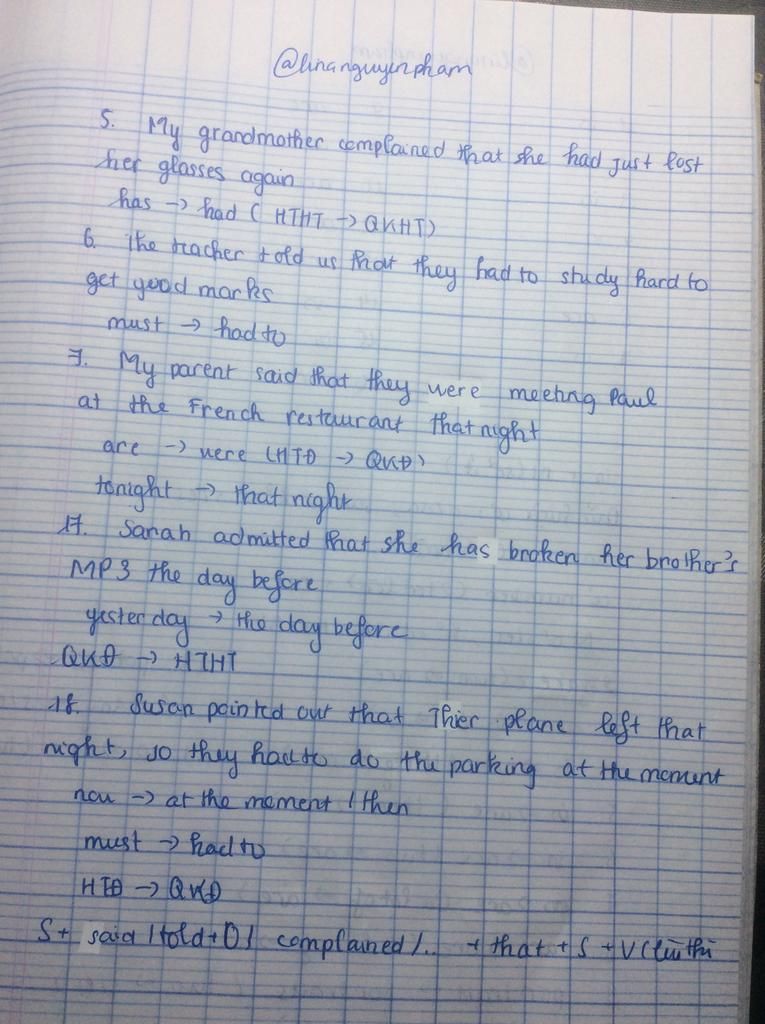 @linanguyenpham
5. My grandmother complained that she had just lost
her glasses again
has -> had ( HTHT -> QKHT)
6. The teacher told us that they had to study hard to
get good marks
must -> had to
7. My parent said that they were meeting Paul
at the French restaurant that night
are -> were (HTĐ -> QKĐ)
tonight -> that night
17. Sarah admitted that she has broken her brother's
MP3 the day before
yesterday -> the day before
QKĐ -> HTHT
18. Susan pointed out that Thier plane left that
night, so they had to do the parking at the moment
now -> at the moment / then
must -> had to
HTĐ -> QKĐ
S+ said / told + O / complained /.. + that + S + V (lùi thì